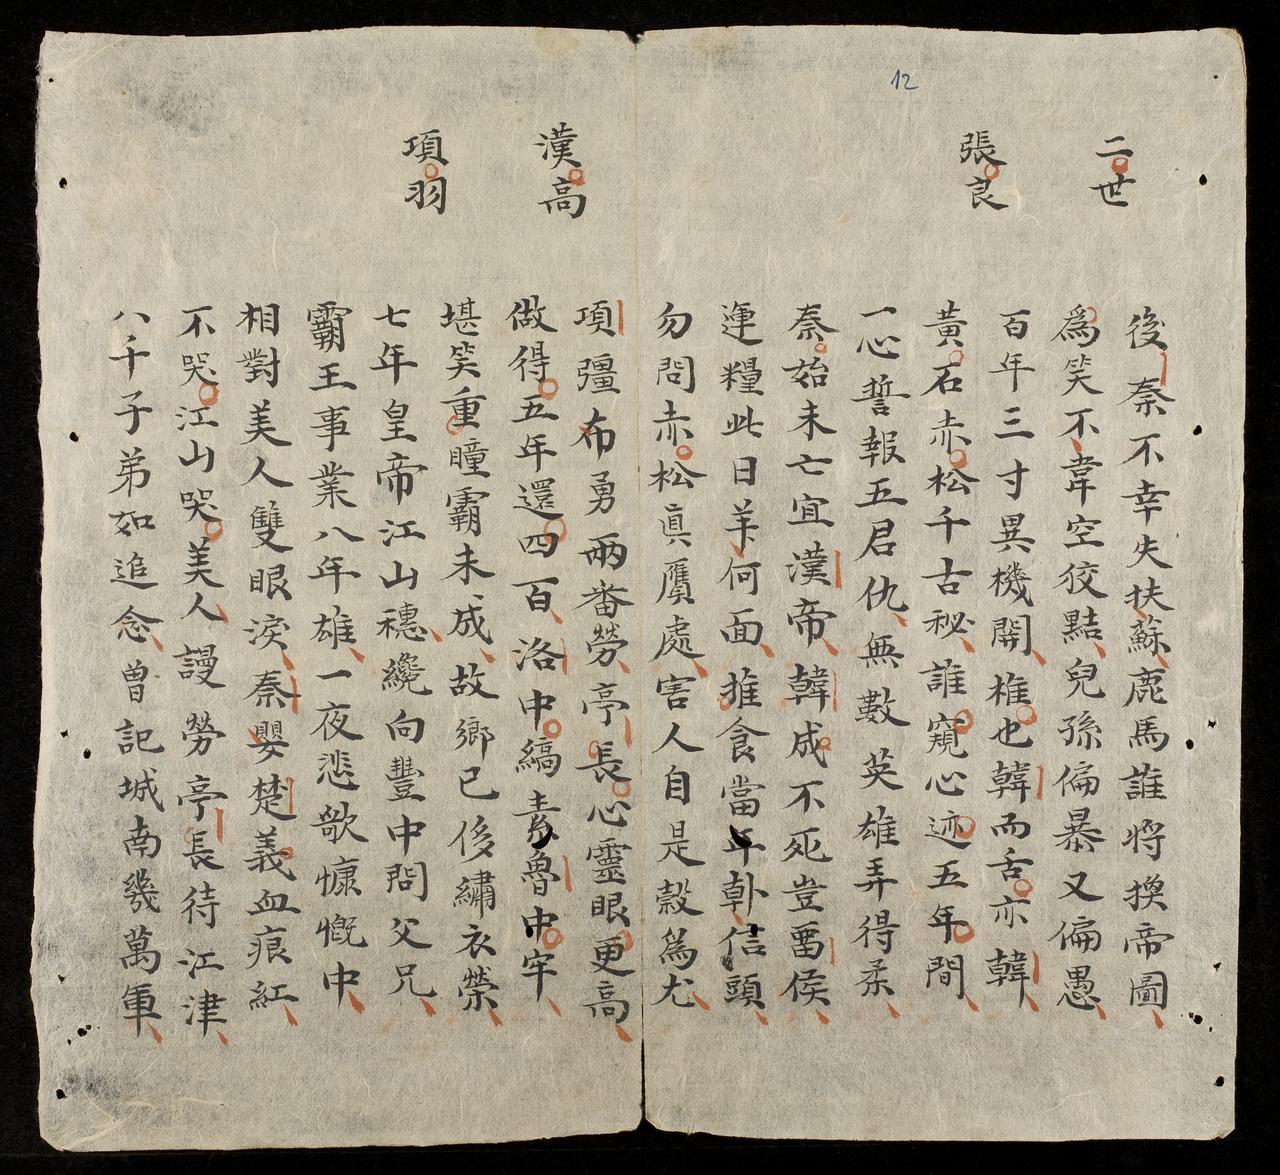 12
二世
後秦不幸失扶蘇鹿馬誰將換帝圖
爲笑不韋空狡黠兒孫偏暴又偏愚
張良
百年三寸異機開椎也韓而舌亦韓
黃石赤松千古秘誰窺心迹五年間
一心誓報五君仇無數英雄弄得柔
秦始未亡宜漢帝韓成不死豈畱侯
運糧此日羊何面推食當年信頭
勿問赤松眞贋處害人自是穀爲尤
漢高
項彊布勇兩番勞亭長心靈眼更高
做得五年還四百洛中縞素魯中牢
堪笑重瞳霸未成故鄉已侈繡衣榮
七年皇帝江山穩纔向豐中問父兄
項羽
霸王事業八年雄一夜悲歌慷慨中
相對美人雙眼淚秦嬰楚義血痕紅
不哭江山哭美人謾勞亭長待江津
八千子弟如追念曾記城南幾萬軍